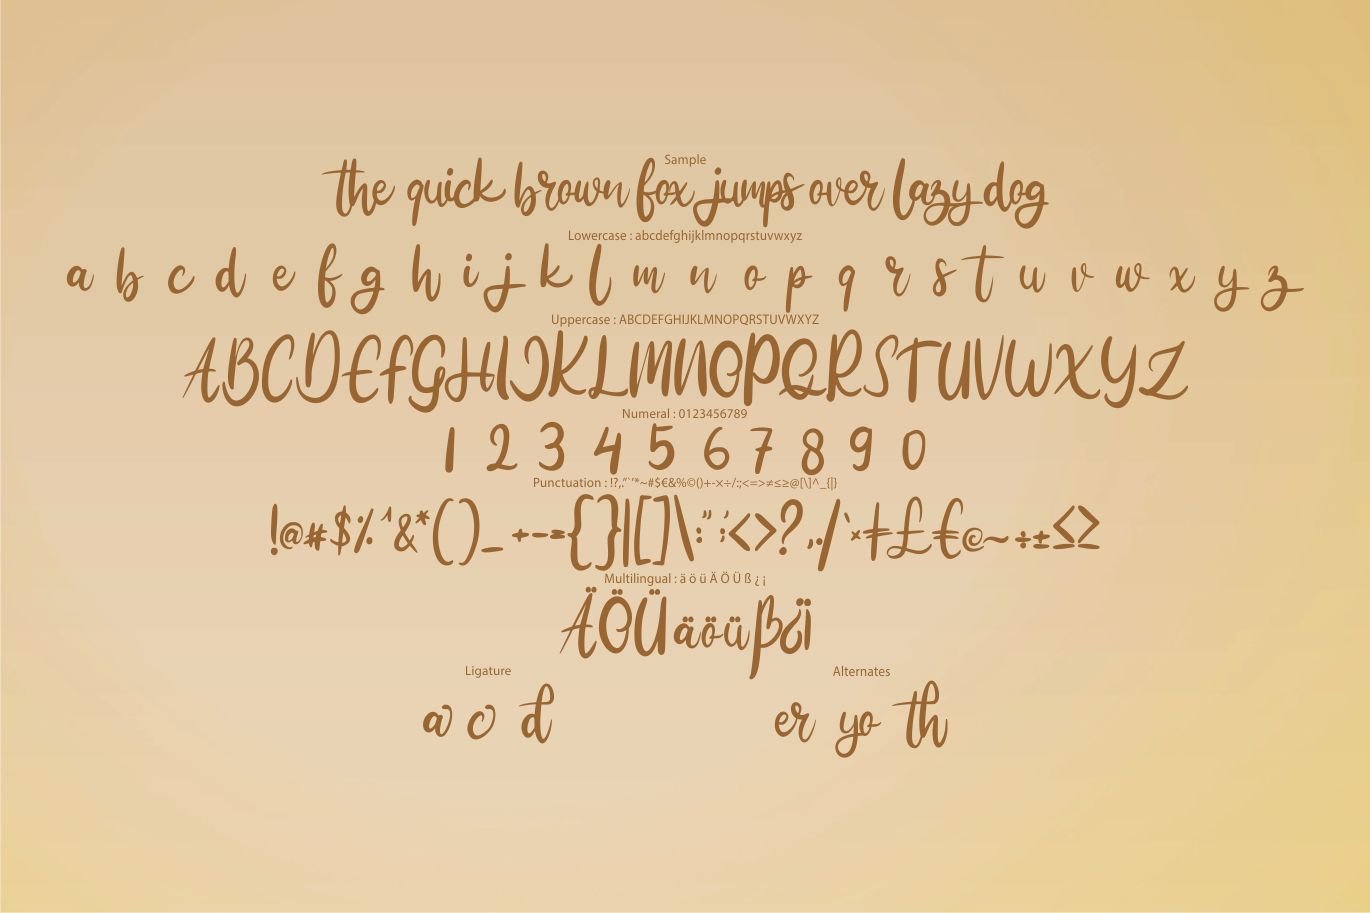 Sample
the quick brown fox jumps over lazy dog
Lowercase : abcdefghijklmnopqrstuvwxyz
a b c d e f g h i j k l m n o p q r s t u v w x y z
Uppercase : ABCDEFGHIJKLMNOPQRSTUVWXYZ
ABCDEFGHIJKLMNOPQRSTUVWXYZ
Numeral : 0123456789
1 2 3 4 5 6 7 8 9 0
Punctuation : !?,."`'*~#$€&%©()+-×÷/:;<=>≠≤≥@[\]^_{|}
!@#$%^&*()_ +-={}|[]\:";'<>?,./`×≠£€©~÷±≤≥
Multilingual : ä ö ü Ä Ö Ü ß ¿ ¡
ÄÖÜäöüß¿¡
Ligature Alternates
a c d er yo th